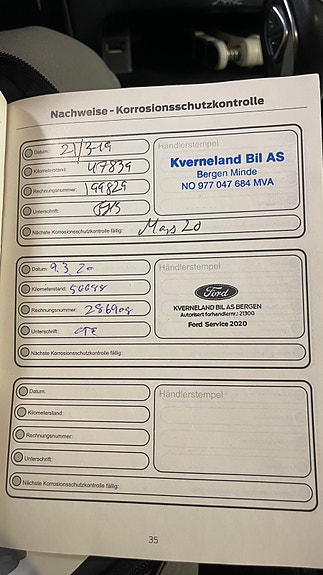 Nachweise - Korrosionsschutzkontrolle
Datum: 21/3-19
Kilometerstand: 47839
Rechnungsnummer: 99829
Unterschrift:
Nächste Korrosionsschutzkontrolle fällig: Mars 20
Händlerstempel
Kverneland Bil AS
Bergen Minde
NO 977 047 684 MVA
Datum: 9.3.20
Kilometerstand:
Rechnungsnummer:
Unterschrift:
Nächste Korrosionsschutzkontrolle fällig:
Händlerstempel
Ford
KVERNELAND BIL AS BERGEN
Autorisert forhandlernr.: 21300
Ford Service 2020
Datum:
Kilometerstand:
Rechnungsnummer:
Unterschrift:
Nächste Korrosionsschutzkontrolle fällig:
Händlerstempel
35